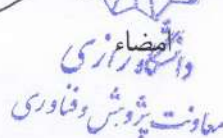 امضاء
دانشگاه رازی
معاونت پژوهش و فناوری